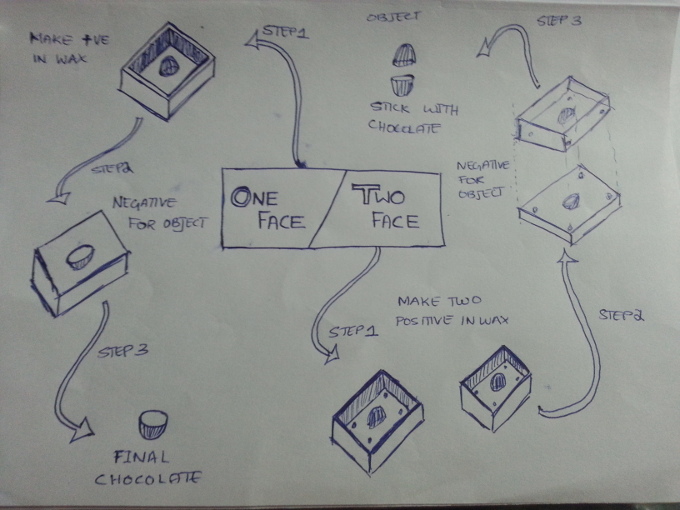 MAKE +VE
IN WAX
STEP1
STEP2
NEGATIVE
FOR OBJECT
STEP 3
FINAL
CHOCOLATE
ONE
FACE
TWO
FACE
STEP1
MAKE TWO
POSITIVE IN WAX
STEP2
NEGATIVE
FOR
OBJECT
STEP 3
OBJECT
STICK WITH
CHOCOLATE